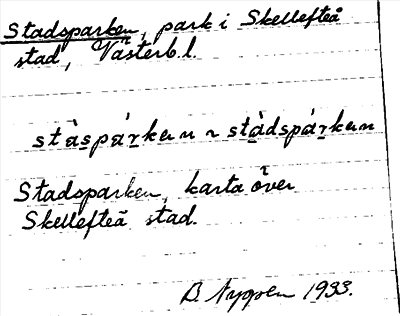 Stadsparken, park i Skellefteå
stad, Västerb. l.
stàspárkan ~ stàdspárkan
Stadsparken, karta över
Skellefteå stad.
B. 1933.